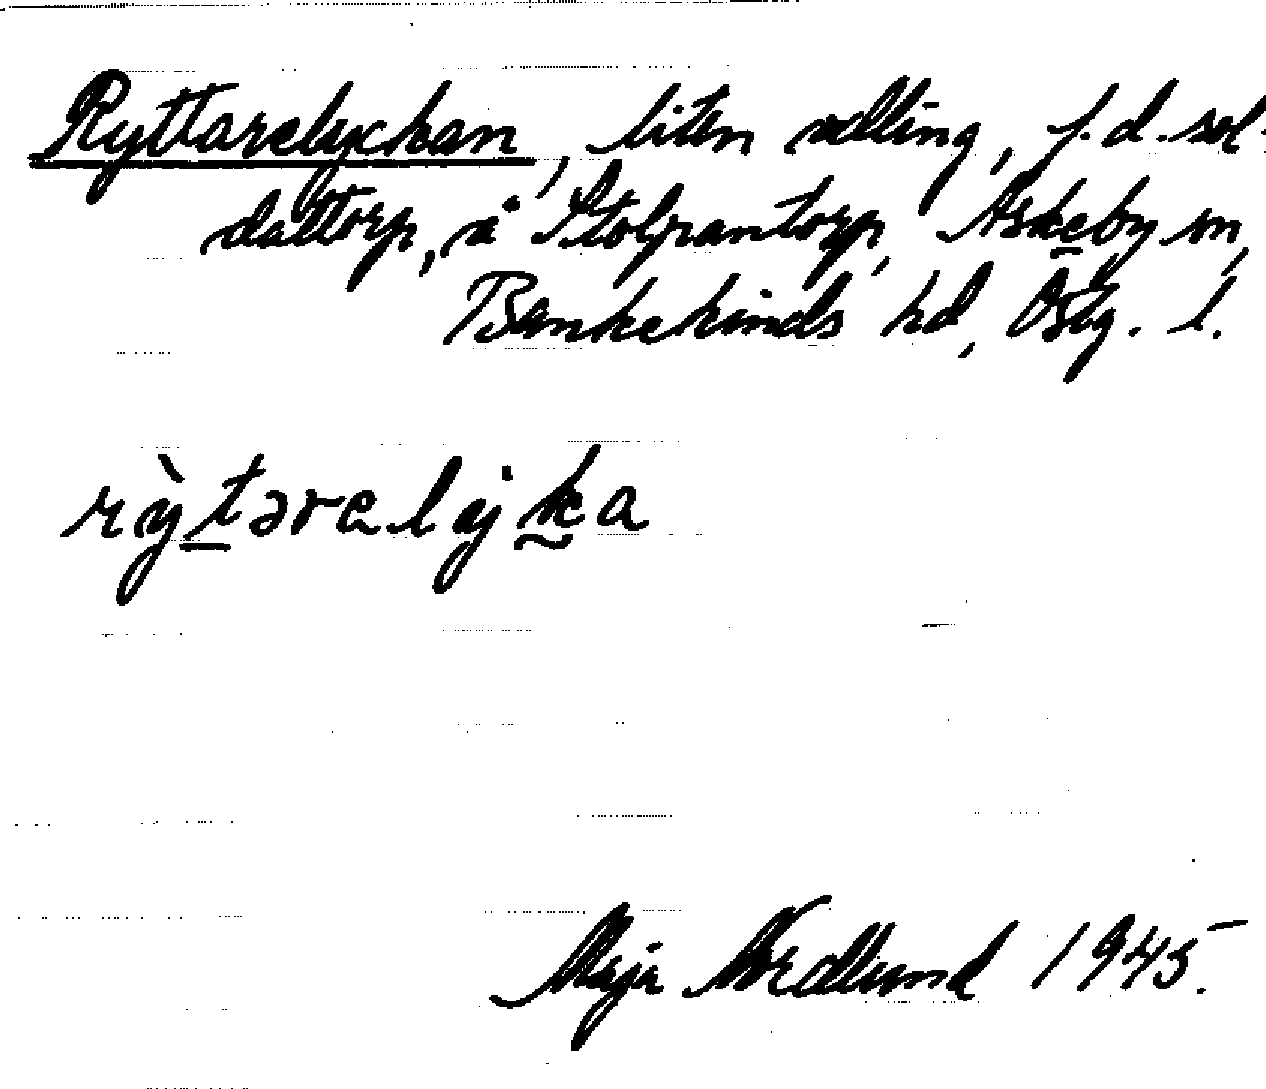 Ryttarelyckan, liten odling, f.d. sol-
dattorp, å Stolpantorp, Askeby sn,
Bankekinds hd, Östg. l.
rỳtərelyka
Maja Wedlund 1945.